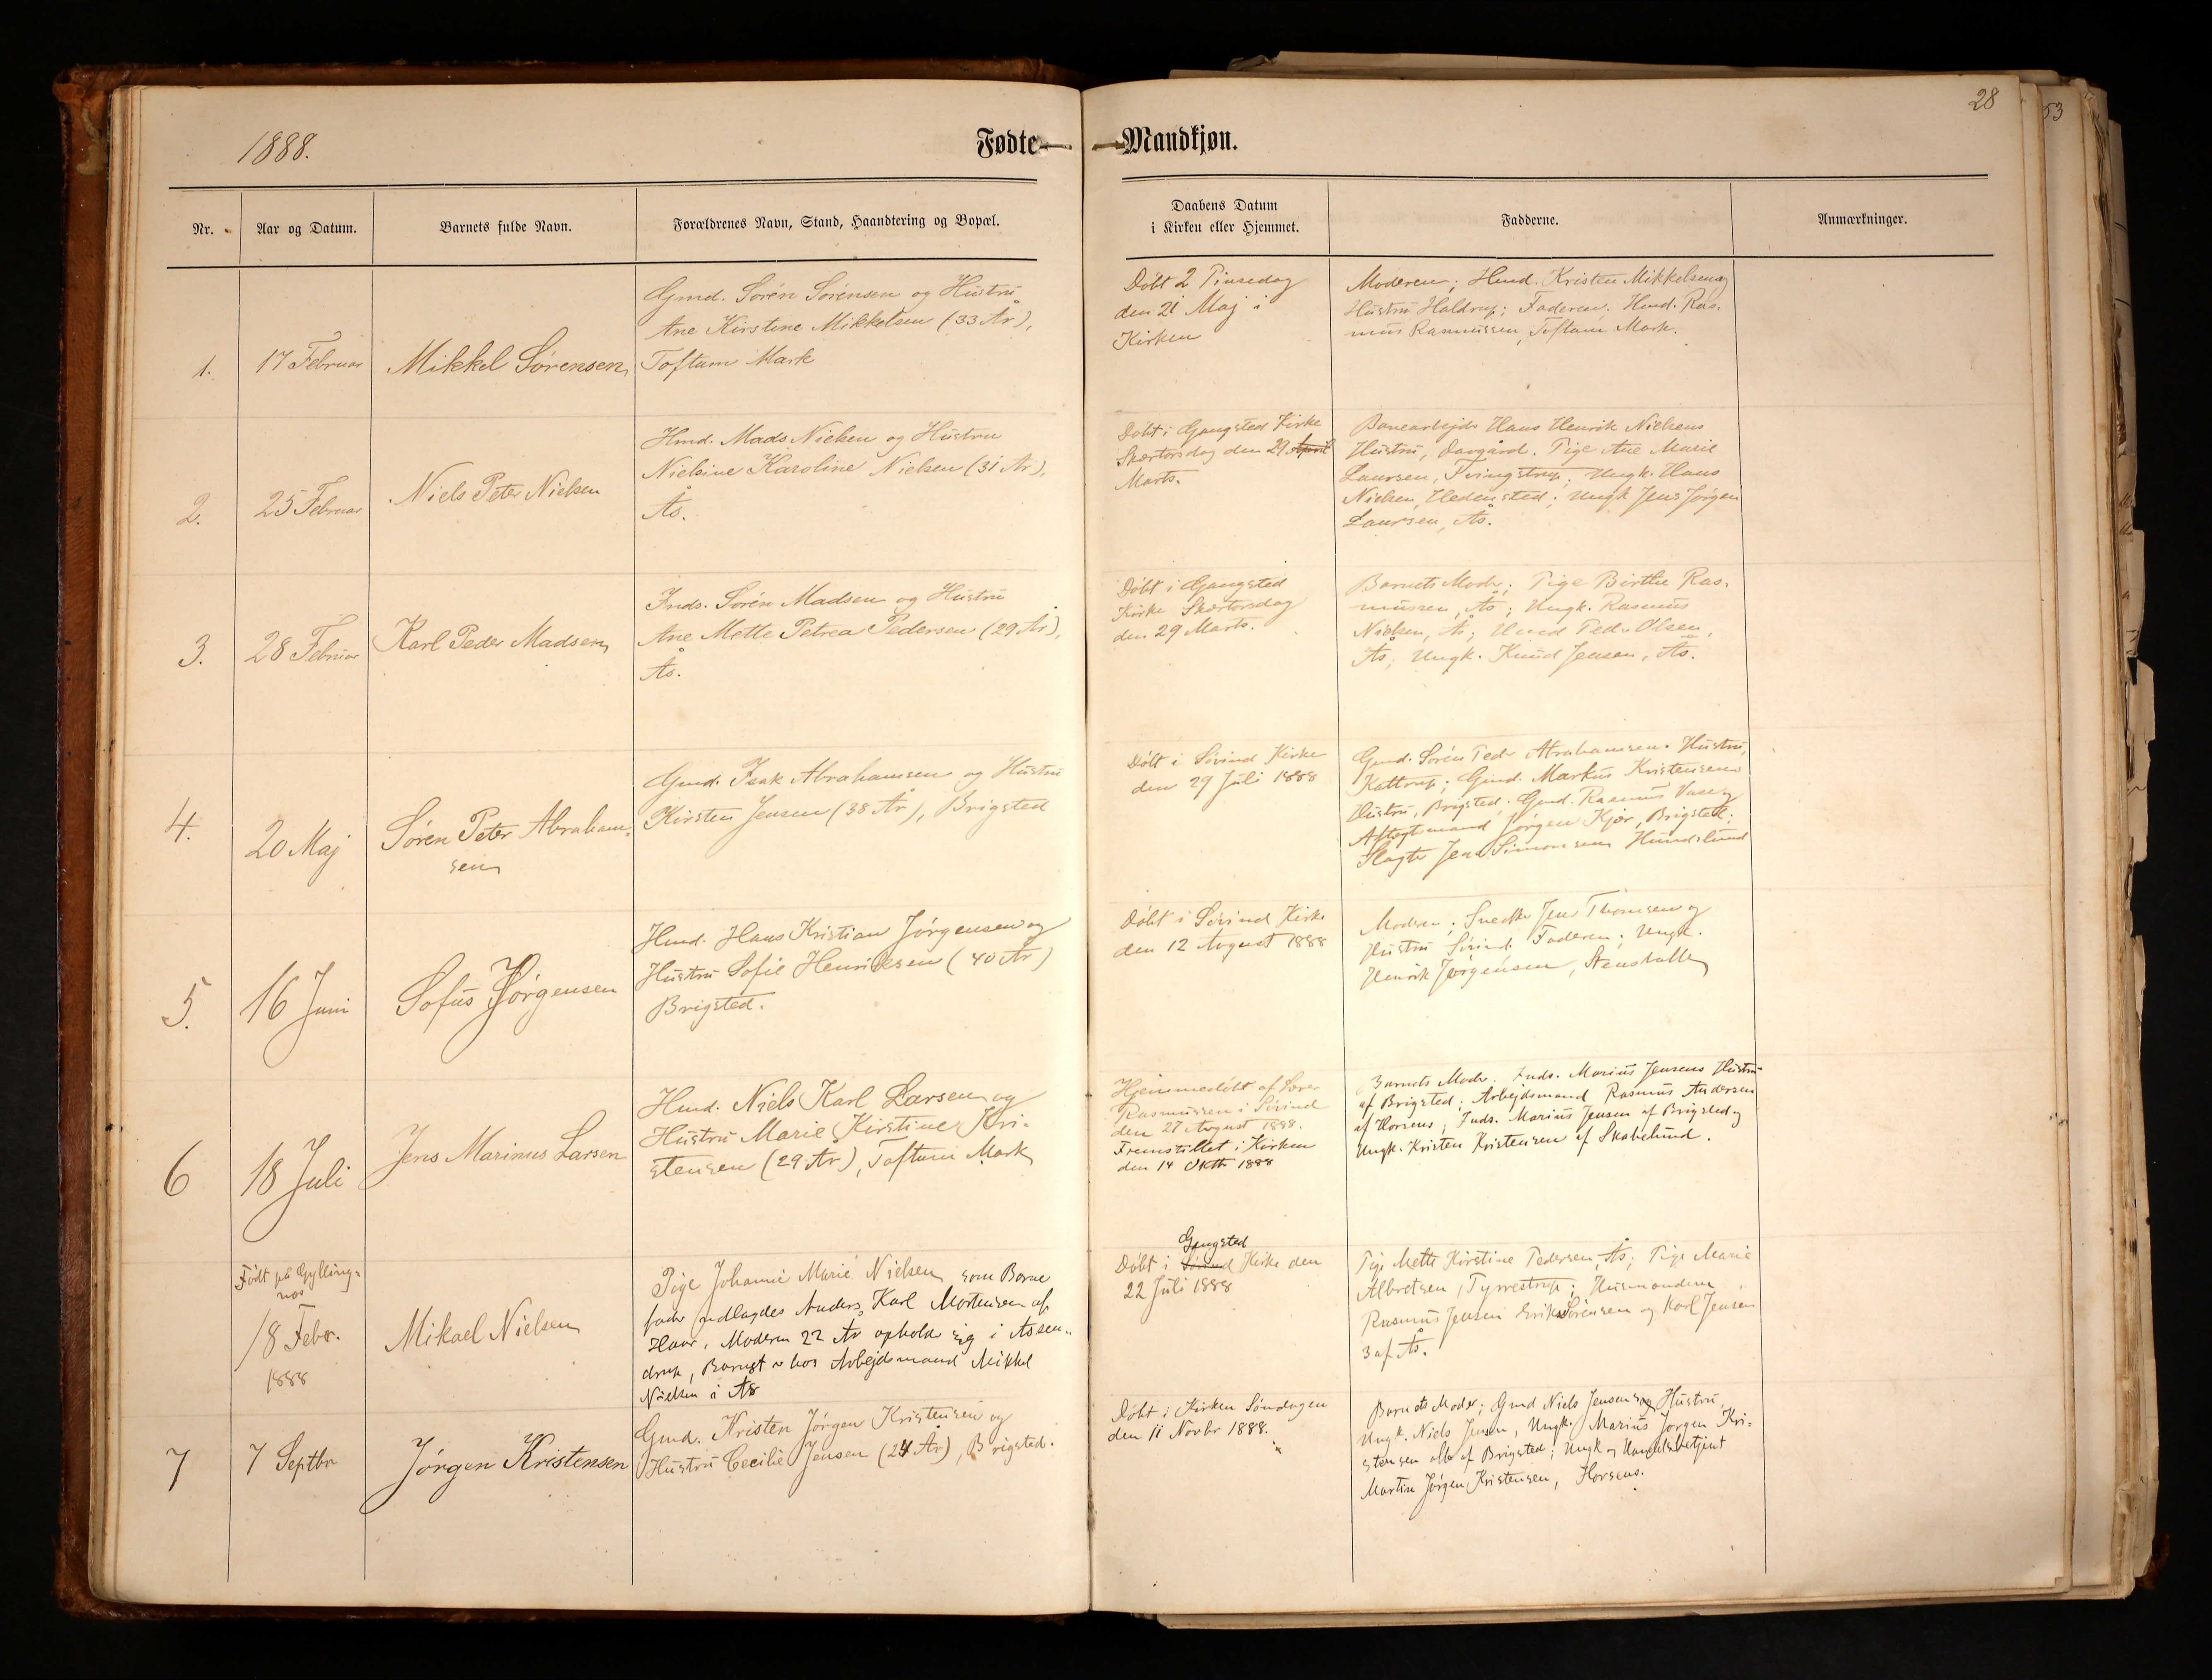 28
53
1888.
Fødte Mandkjøn.
Nr.
Aar og Datum.
Barnets fulde Navn.
Forældrenes Navn, Stand, Haandtering og Bopæl.
Daabens Datum
i Kirken eller Hjemmet.
Fadderne.
Anmærkninger.
1.
17 Februar
Mikkel Sørensen
Gmd. Søren Sørensen og Hustru
Ane Kirstine Mikkelsen (33 År),
Toftum Mark
Døbt 2 Pinsedag
den 21 Maj i
Kirken
Moderen; Hmd. Kristen Mikkelsen og
Hustru Haldrup; Faderen; Hmd. Ras-
mus Rasmussen, Toftum Mark.
2.
25 Februar
Niels Peter Nielsen
Hmd. Mads Nielsen og Hustru
Nielsine Karoline Nielsen (31 År),
Ås.
Døbt i Gangsted Kirke
Skærtorsdag den 29 April
Marts.
Banearbejder Hans Henrik Nielsens
Hustru, Davgård. Pige Ane Marie
Laursen, Tvingstrup; Ungk. Hans
Nielsen, Hedensted; Ungk Jens Jørgen
Laursen, Ås.
3.
28 Februar
Karl Peder Madsen
Inds. Søren Madsen og Hustru
Ane Mette Petrea Pedersen (29 År),
Ås.
Døbt i Gangsted
Kirke Skærtorsdag
den 29 Marts.
Barnets Moder; Pige Birthe Ras-
mussen, Ås; Ungk. Rasmus
Nielsen, Ås; Hmd Peder Olsen,
Ås; Ungk. Knud Jensen, Ås.
4.
20 Maj
Søren Peter Abraham-
sen
Gmd. Isak Abrahamsen og Hustru
Kirsten Jensen (38 År), Brigsted
Døbt i Søvind Kirke
den 29 Juli 1888
Gmd. Søren Peder Abrahamsens Hustru,
Kattrup; Gmd. Markus Kristensens
Hustru, Brigsted; Gmd. Rasmus Vase og
Aftægtsmand Jørgen Kjær, Brigsted;
Slagter Jens Simonsen Hundslund
5.
16 Juni
Sofus Jørgensen
Hmd. Hans Kristian Jørgensen og
Hustru Sofie Henriksen (40 År)
Brigsted.
Døbt i Søvind Kirke
den 12 August 1888
Moderen; Snedker Jens Thomsen og
Hustru Søvind. Faderen; Ungk.
Henrik Jørgensen, Stensballe
6
18 Juli
Jens Marinus Larsen
Hmd. Niels Karl Larsen og
Hustru Marie Kirstine Kri-
stensen (29 År), Toftum Mark
Hjemmedøbt af Lærer
Rasmussen i Søvind
den 27 August 1888.
Fremstillet i Kirken
den 14 Oktbr 1888
Barnets Moder; Inds. Marius Jensens Hustru
af Brigsted; Arbejdsmand Rasmus Andersen
af Horsens; Inds. Marius Jensen af Brigsted og
Ungk. Kristen Kristensen af Skabelund.
Født på Gylling-
næs
18 Febr.
1888
Mikael Nielsen
Pige Johanne Marie Nielsen, som Barne
fader udlagdes Anders Karl Mortensen af
Haar. Moderen 22 År opholder sig i Assen-
drup, Barnet er hos Arbejdsmand Mikkel
Nielsen i Ås
Gangsted
Døbt i Søvind Kirke den
22 Juli 1888
Pige Mette Kirstine Pedersen, Ås; Pige Marie
Albretsen, Tyrrestrup; Husmændene
Rasmus Jensen Erik Sørensen og Karl Jensen
3 af Ås.
7
7 Septbr
Jørgen Kristensen
Gmd. Kristen Jørgen Kristensen og
Hustru Cecilie Jensen (24 År), Brigsted.
Døbt i Kirken Søndagen
den 11 Novbr 1888.
Barnets Moder; Gmd Niels Jensen og Hustru,
Ungk. Niels Jensen, Ungk. Marius Jørgen Kri-
stensen alle af Brigsted; Ungk og Handelsbetjent
Martin Jørgen Kristensen, Horsens.